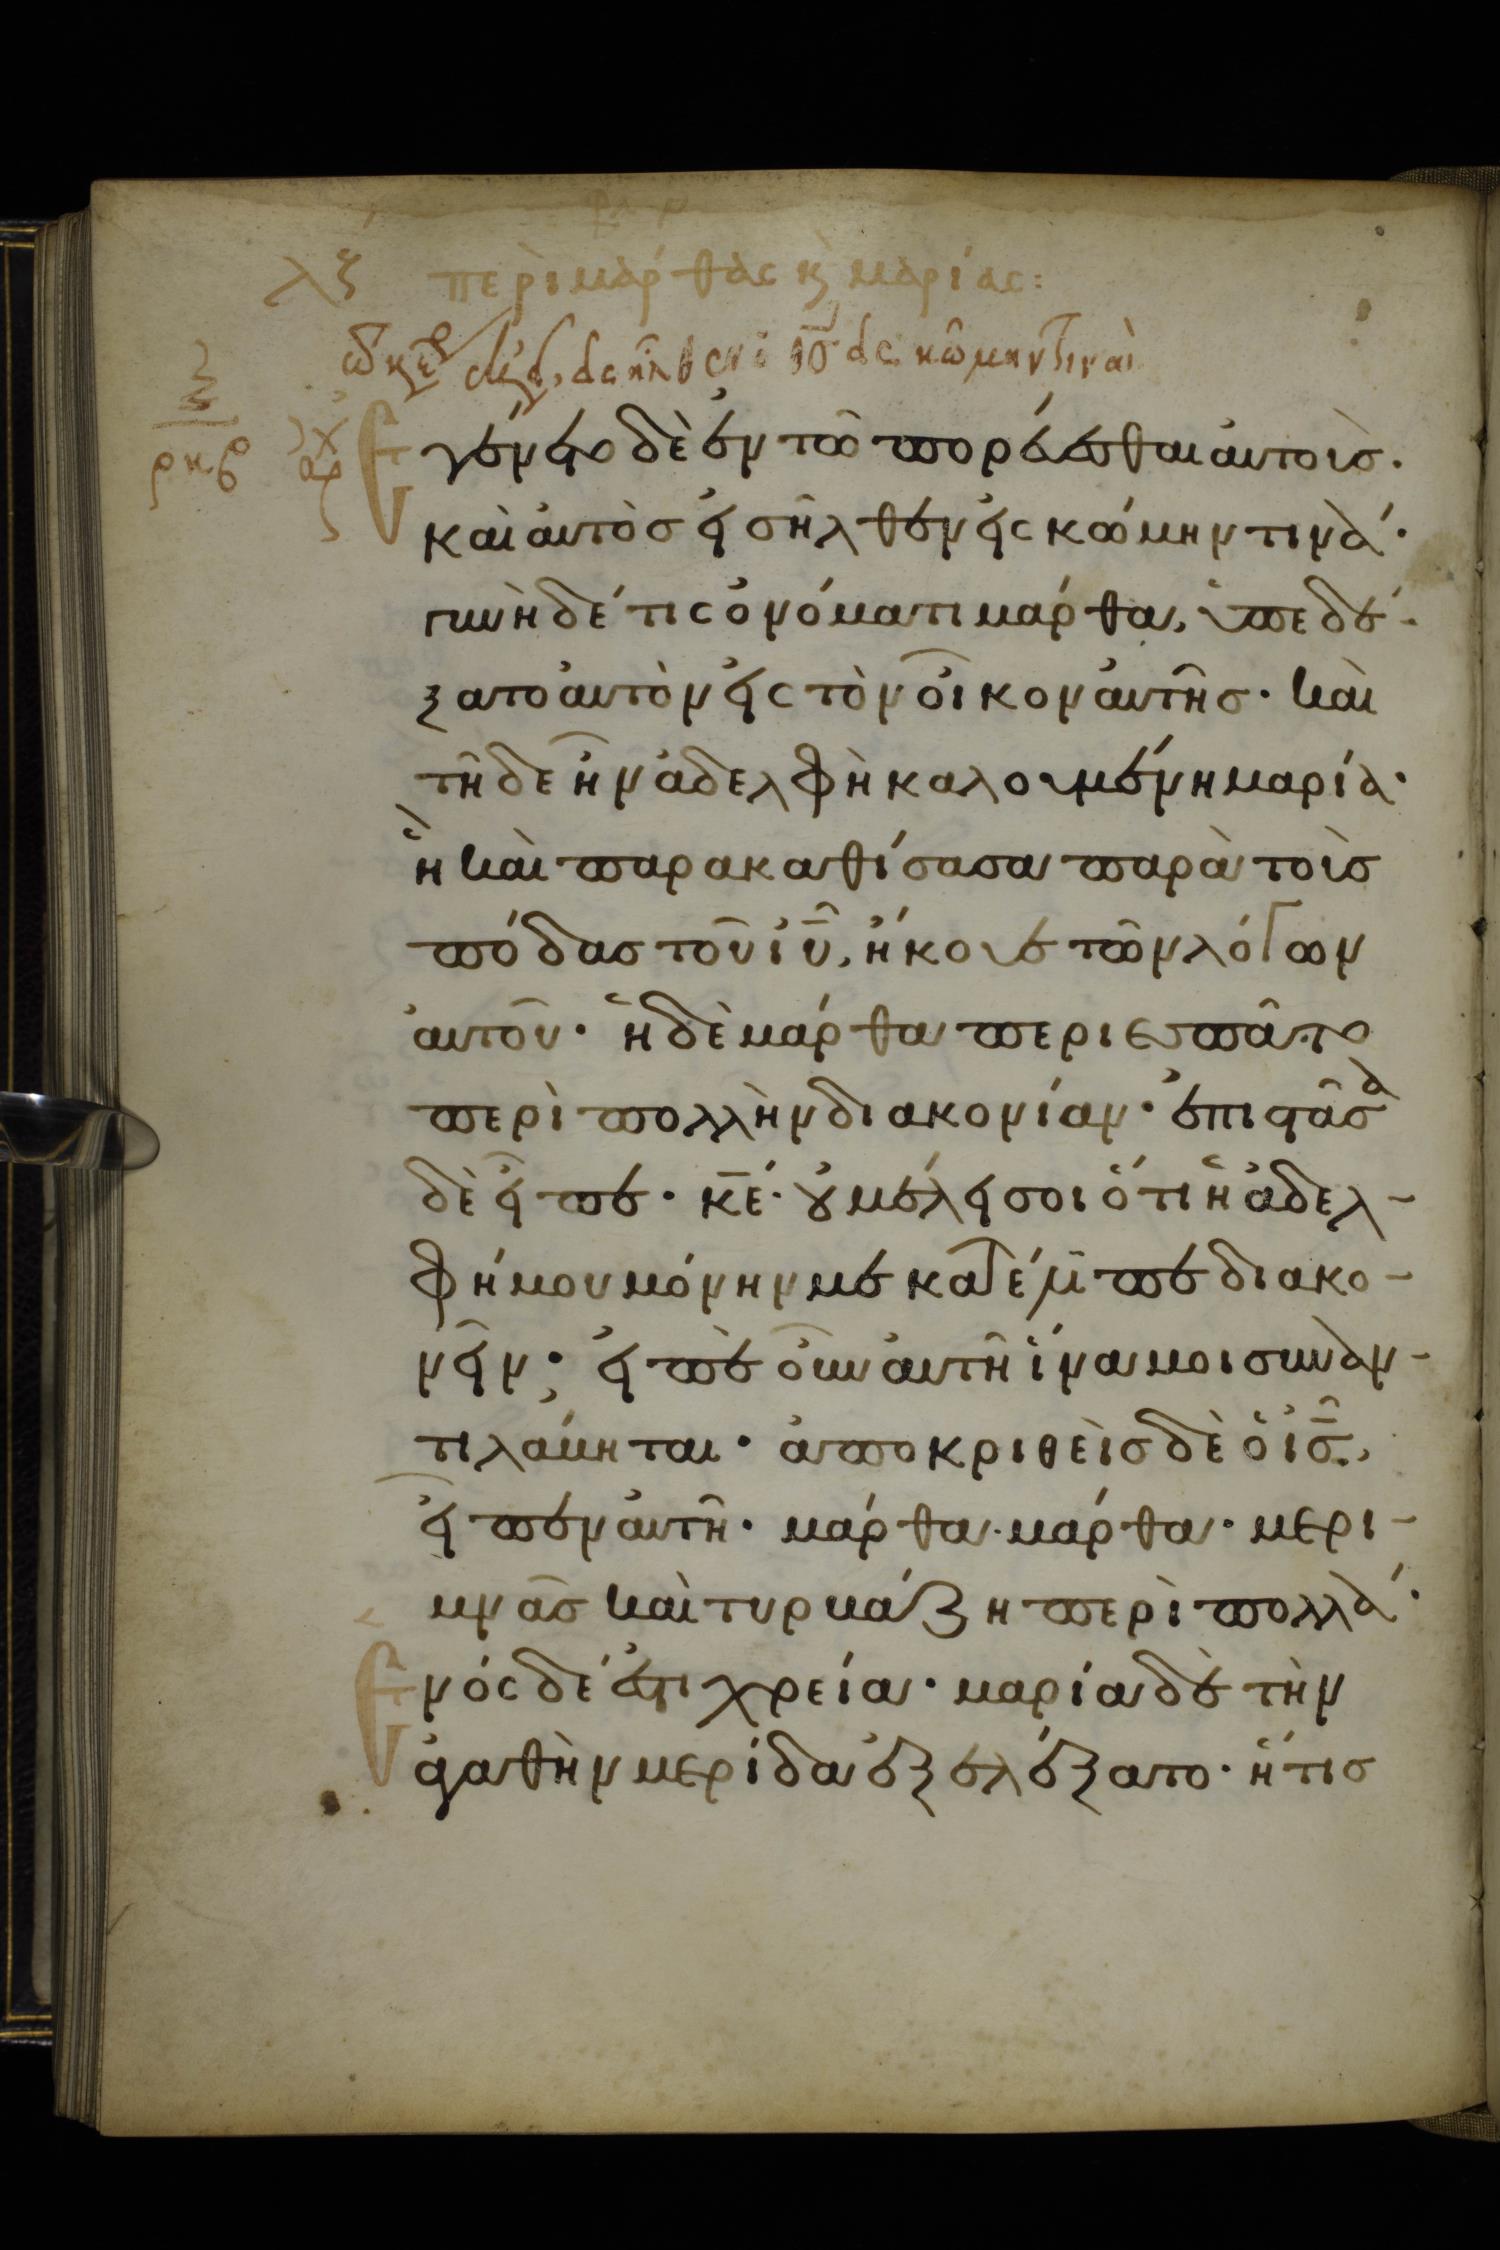 λζ περὶ μάρθας κ μαρίας:
τῷ καιρῷ ἐκείνῳ, εἰσῆλθεν ὁ ις εἰς κώμην τινὰ
ρκβ αρχ
Εγένετο δὲ ἐν τῶ πορεύεσθαι αυτοὺσ.
καὶ ἀυτὸσ εἰσῆλθεν εἰς κώμην τινὰ·
γυνὴ δέ τις ὀνόματι μάρθα, ὑπεδέ-
ξατο ἀυτὸν εἰς τὸν οἶκον ἀυτῆσ. καὶ
τῆδε ἦν ἀδελφὴ καλουμένη μαρία·
ἣ καὶ παρακαθίσασα παρὰ τοὺσ
πόδασ τοῦ ἰῦ, ἤκουε τῶν λόγων
ἀυτοῦ· ἡ δὲ μάρθα περιεσπᾶτο
περὶ πολλὴν διακονίαν· ἐπιστᾶσα
δὲ εἶπε· κε· ου μέλει σοι ὅτι ἡ ἀδελ-
φή μου μόνην με κατέλιπε διακο-
νεῖν; εἰπὲ οὖν ἀυτῆ ἵνα μοι συναν-
τιλάβηται· ἀποκριθεὶσ δὲ ὁ ις,
εἶπεν ἀυτῆ· μάρθα· μάρθα· μερι-
μνᾶσ καὶ τυρβάζη περὶ πολλά·
Ενός δέ ἐστι χρεία· μαρία δὲ τὴν
ἀγαθὴν μερίδα ἐξελέξατο· ἥτισ